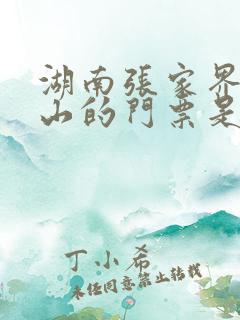 湖南張家界
山的門票是
丁小希
未经同意禁止转载